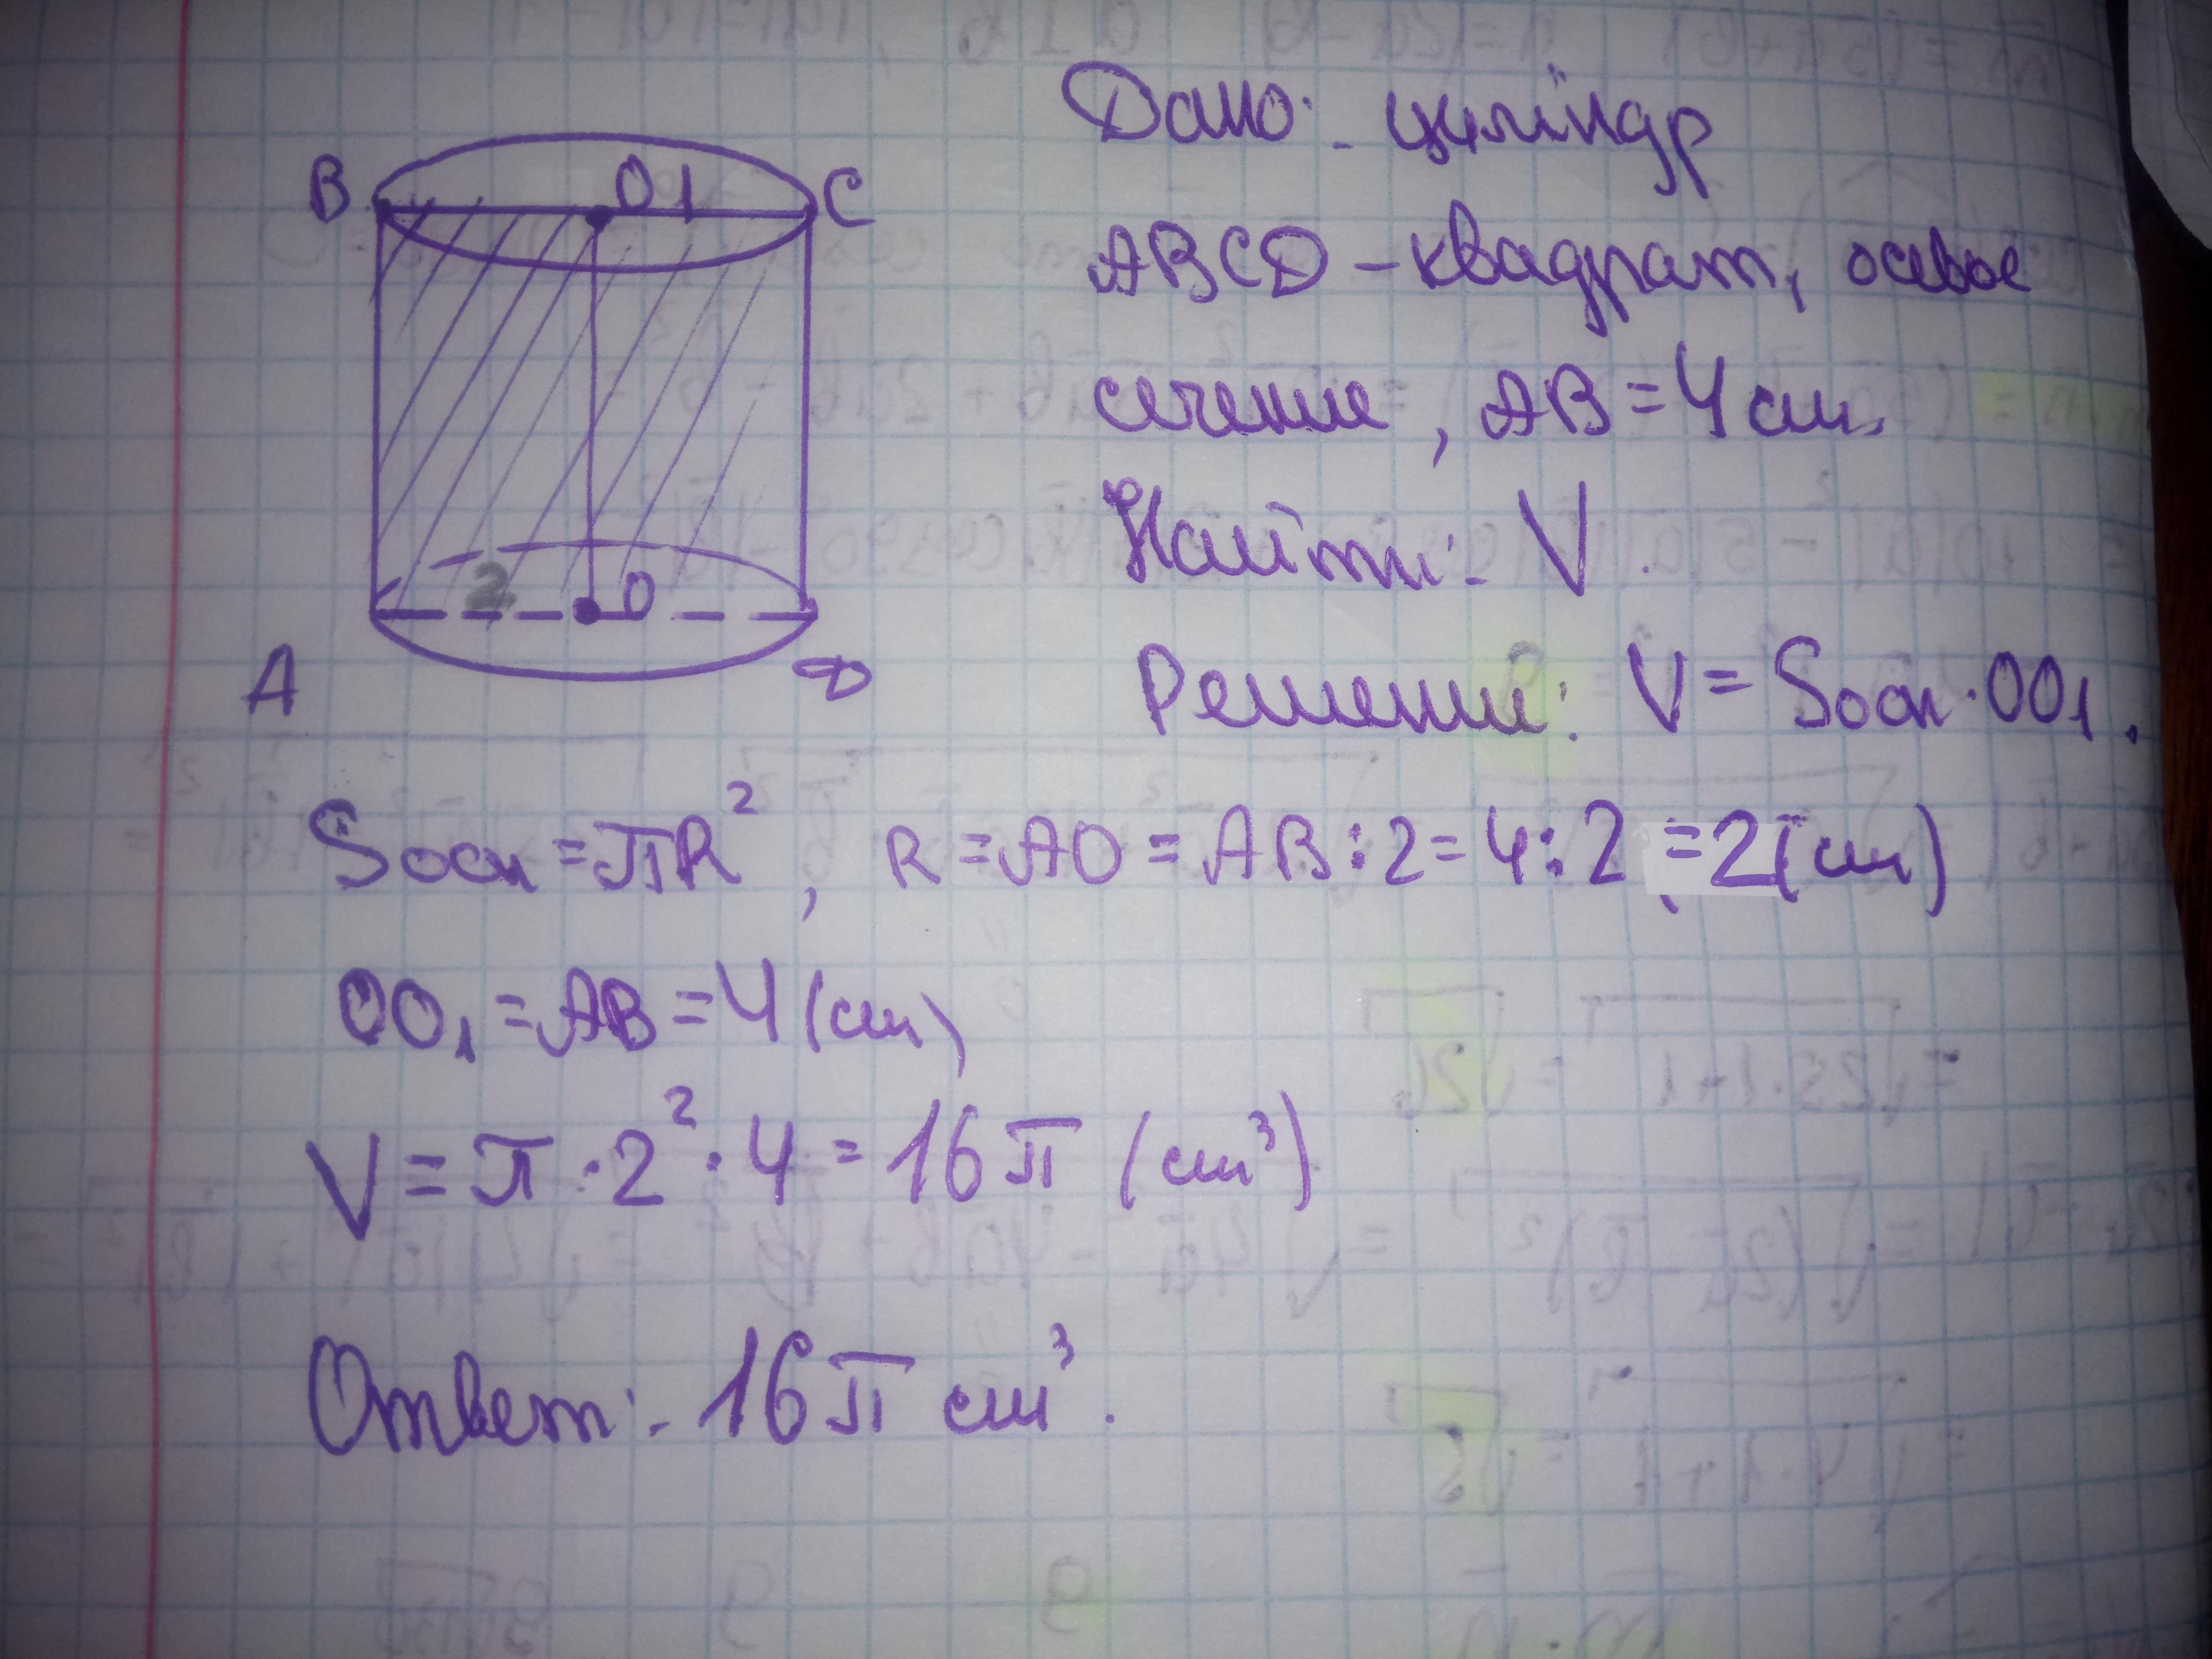 B O1 C
2 O
A D
Дано: цилиндр
ABCD – квадрат, осевое
сечение, AB = 4 см.
Найти: V.
Решение: V = Sосн · OO₁.
Sосн = πR², R = AO = AB : 2 = 4 : 2 = 2 (см)
OO₁ = AB = 4 (см)
V = π · 2² · 4 = 16π (см³)
Ответ: 16π см³.